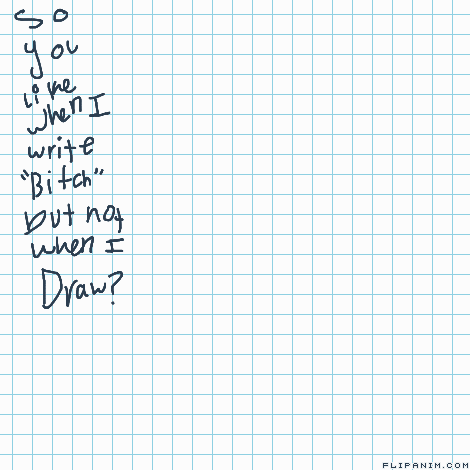 So
you
like
when I
write
"Bitch"
but not
when I
Draw?
FLIPANIM.COM